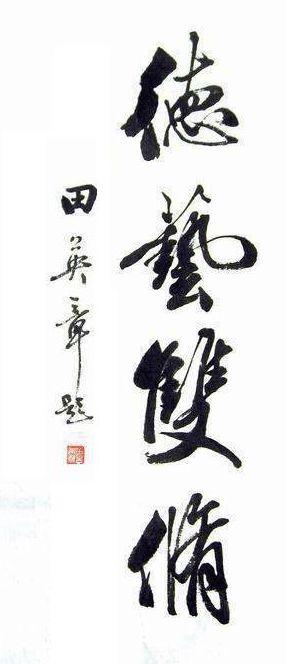 德藝雙脩
田英章題